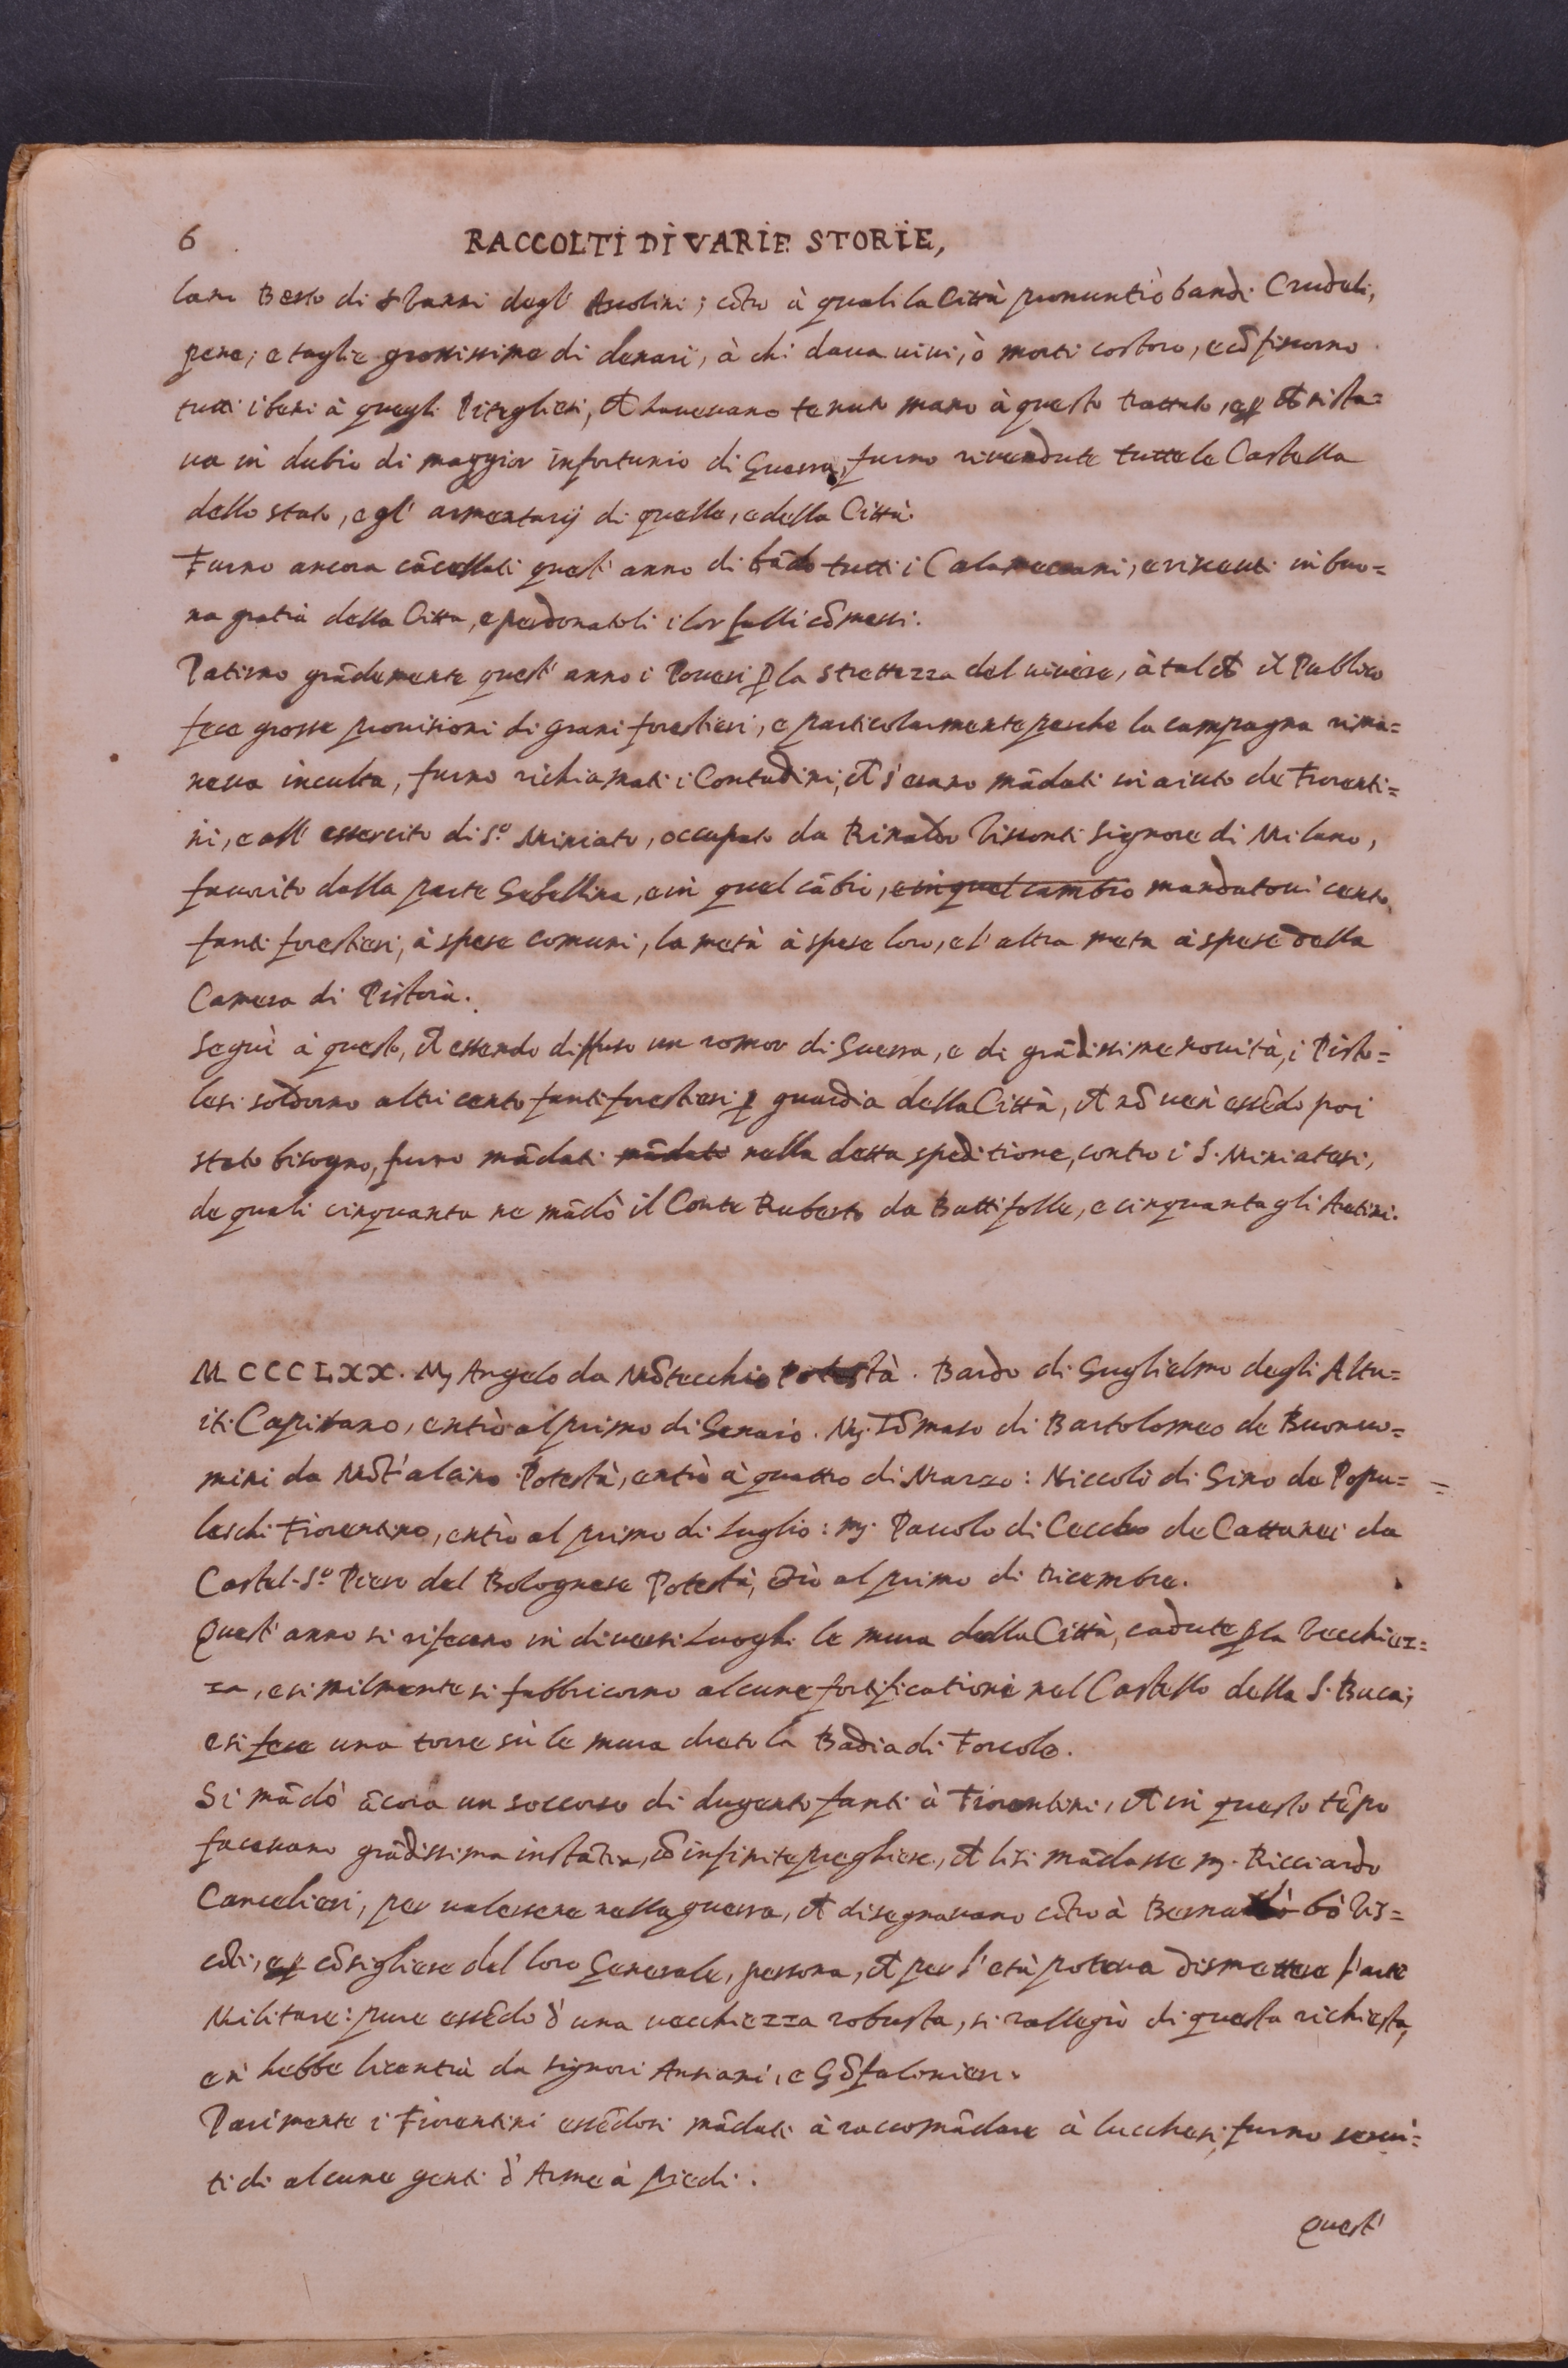 6 RACCOLTI DI VARIE STORIE,
lani Betto di Sbanni degl' Asolini; cõtro à quali la Città pronuntiò bandi Crudeli,
pene, e taglie grossissime di denari, à chi daua uiui, ò morti costoro, e cõfiscorno
tutti i beni à quegli Piteglieri, ch hauevano tenuto mano à questo trattato, e ꝑ ch si sta=
ua in dubio di maggior infortunio di Guerra, furno riuedute tutte le Castella
dello stato, e gl' armentarij di quelle, e della Città.
Furno ancora cãcellati quest' anno di bãdo tutti i Calameccani, e riceuti in buo=
na gratia della Citta, e perdonatoli i lor falli cõmessi.
Patirno grãdemente quest' anno i Poueri ꝑ la strettezza del uiuere, à tal ch il Publico
fece grosse prouisioni di grani forestieri, e particolarmente perche la campagna rima=
neua inculta, furno richiamati i Contadini, ch s'erano mãdati in aiuto de Fiorenti=
ni, e all' essercito di S.º Miniato, occupato da Rinaldo Visconti Signore di Milano,
fauorito dalla parte Gebellina, e in quel cãbio, e in quel cambio mandatoui cento
fanti forestieri, à spese comuni, la metà à spese loro, e l'altra meta à spese della
Camera di Pistoia.
Seguì à questo, ch essendo diffuso un romor di Guerra, e di grãdissime nouità, i Pisto=
lesi soldorno altri cento fanti forestieri ꝑ guardia della Città, ch nõ uen' essẽdo poi
stato bisogno, furno mãdati mãdati nella detta speditione, contro i S. Miniatesi,
de quali cinquanta ne mãdò il Conte Ruberto da Battifolle, e cinquanta gli Aretini.
MCCCLXX. Mj Angelo da Mõtecchio Potestà. Bardo di Guglielmo degli Altu=
iti Capitano, entrò al primo di Genaio. Mj. Tõmaso di Bartolomeo de Buonuo=
mini da Mõt'alcino Potestà, entrò à quattro di Marzo: Niccolò di Gino de Popu=
leschi Fiorentino, entrò al primo di Luglio: mj. Pauolo di Ceccho de Cattanei da
Castel S.º Piero del Bolognese Potestà, ẽtrò al primo di Dicembre.
Quest' anno si rifecero in diuersi Luoghi le mura della Città, cadute ꝑ la Vecchiez=
za, e similmente si fabbricorno alcune fortificationi nel Castello della S. Buca;
e si fece una torre sù le mura dreto la Badia di Forcole.
Si mãdò ãcora un soccorso di dugento fanti à Fiorentini, ch in questo tẽpo
faceuano grãdissima instãtia, cõ infinite preghiere, ch li si mãdasse mj. Ricciardo
Cancelieri, per ualersene nella guerra, ch disegnauano cõtro à Berna bò Vis=
cõti, e ꝑ cõsigliere del loro Generale, persona, ch per l'età poteua dismettere l'arte
Militare: pure essẽdo d'una uecchiezza robusta, si rallegrò di questa richiesta,
e n' hebbe licentia da Signori Antiani, e Gõfalonieri.
Parimente i Fiorentini essẽdosi mãdati à raccomãdare à lucchesi, furno serui=
ti di alcune genti d'Arme à piedi.
Quest'